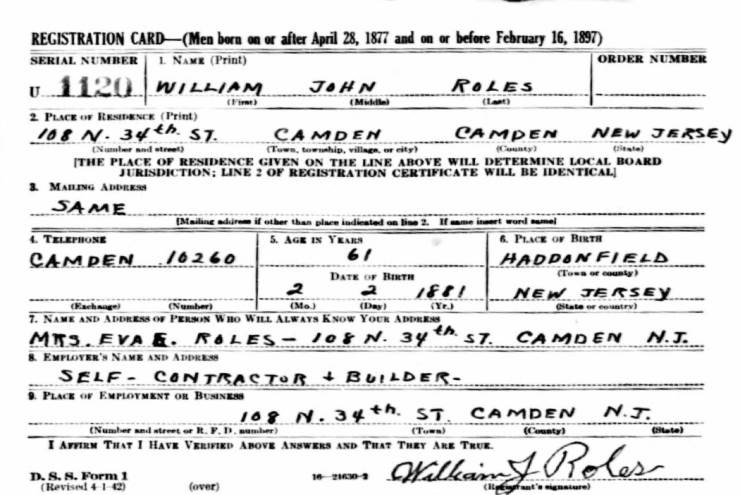 REGISTRATION CARD—(Men born on or after April 28, 1877 and on or before February 16, 1897)
SERIAL NUMBER 1. NAME (Print) ORDER NUMBER
U 1120 WILLIAM JOHN ROLES
(First) (Middle) (Last)
2. PLACE OF RESIDENCE (Print)
108 N. 34th. ST. CAMDEN CAMDEN NEW JERSEY
(Number and street) (Town, township, village, or city) (County) (State)
[THE PLACE OF RESIDENCE GIVEN ON THE LINE ABOVE WILL DETERMINE LOCAL BOARD
JURISDICTION; LINE 2 OF REGISTRATION CERTIFICATE WILL BE IDENTICAL]
3. MAILING ADDRESS
SAME
[Mailing address if other than place indicated on line 2. If same insert word same]
4. TELEPHONE 5. AGE IN YEARS 6. PLACE OF BIRTH
CAMDEN 10260 61 HADDONFIELD
DATE OF BIRTH (Town or county)
2 2 1881 NEW JERSEY
(Exchange) (Number) (Mo.) (Day) (Yr.) (State or country)
7. NAME AND ADDRESS OF PERSON WHO WILL ALWAYS KNOW YOUR ADDRESS
MRS. EVA E. ROLES - 108 N. 34th ST. CAMDEN N.J.
8. EMPLOYER'S NAME AND ADDRESS
SELF - CONTRACTOR + BUILDER -
9. PLACE OF EMPLOYMENT OR BUSINESS
108 N. 34th. ST. CAMDEN N.J.
(Number and street or R. F. D. number) (Town) (County) (State)
I AFFIRM THAT I HAVE VERIFIED ABOVE ANSWERS AND THAT THEY ARE TRUE.
D. S. S. Form 1 16—21630-2 William J Roles
(Revised 4-1-42) (over) (Registrant's signature)